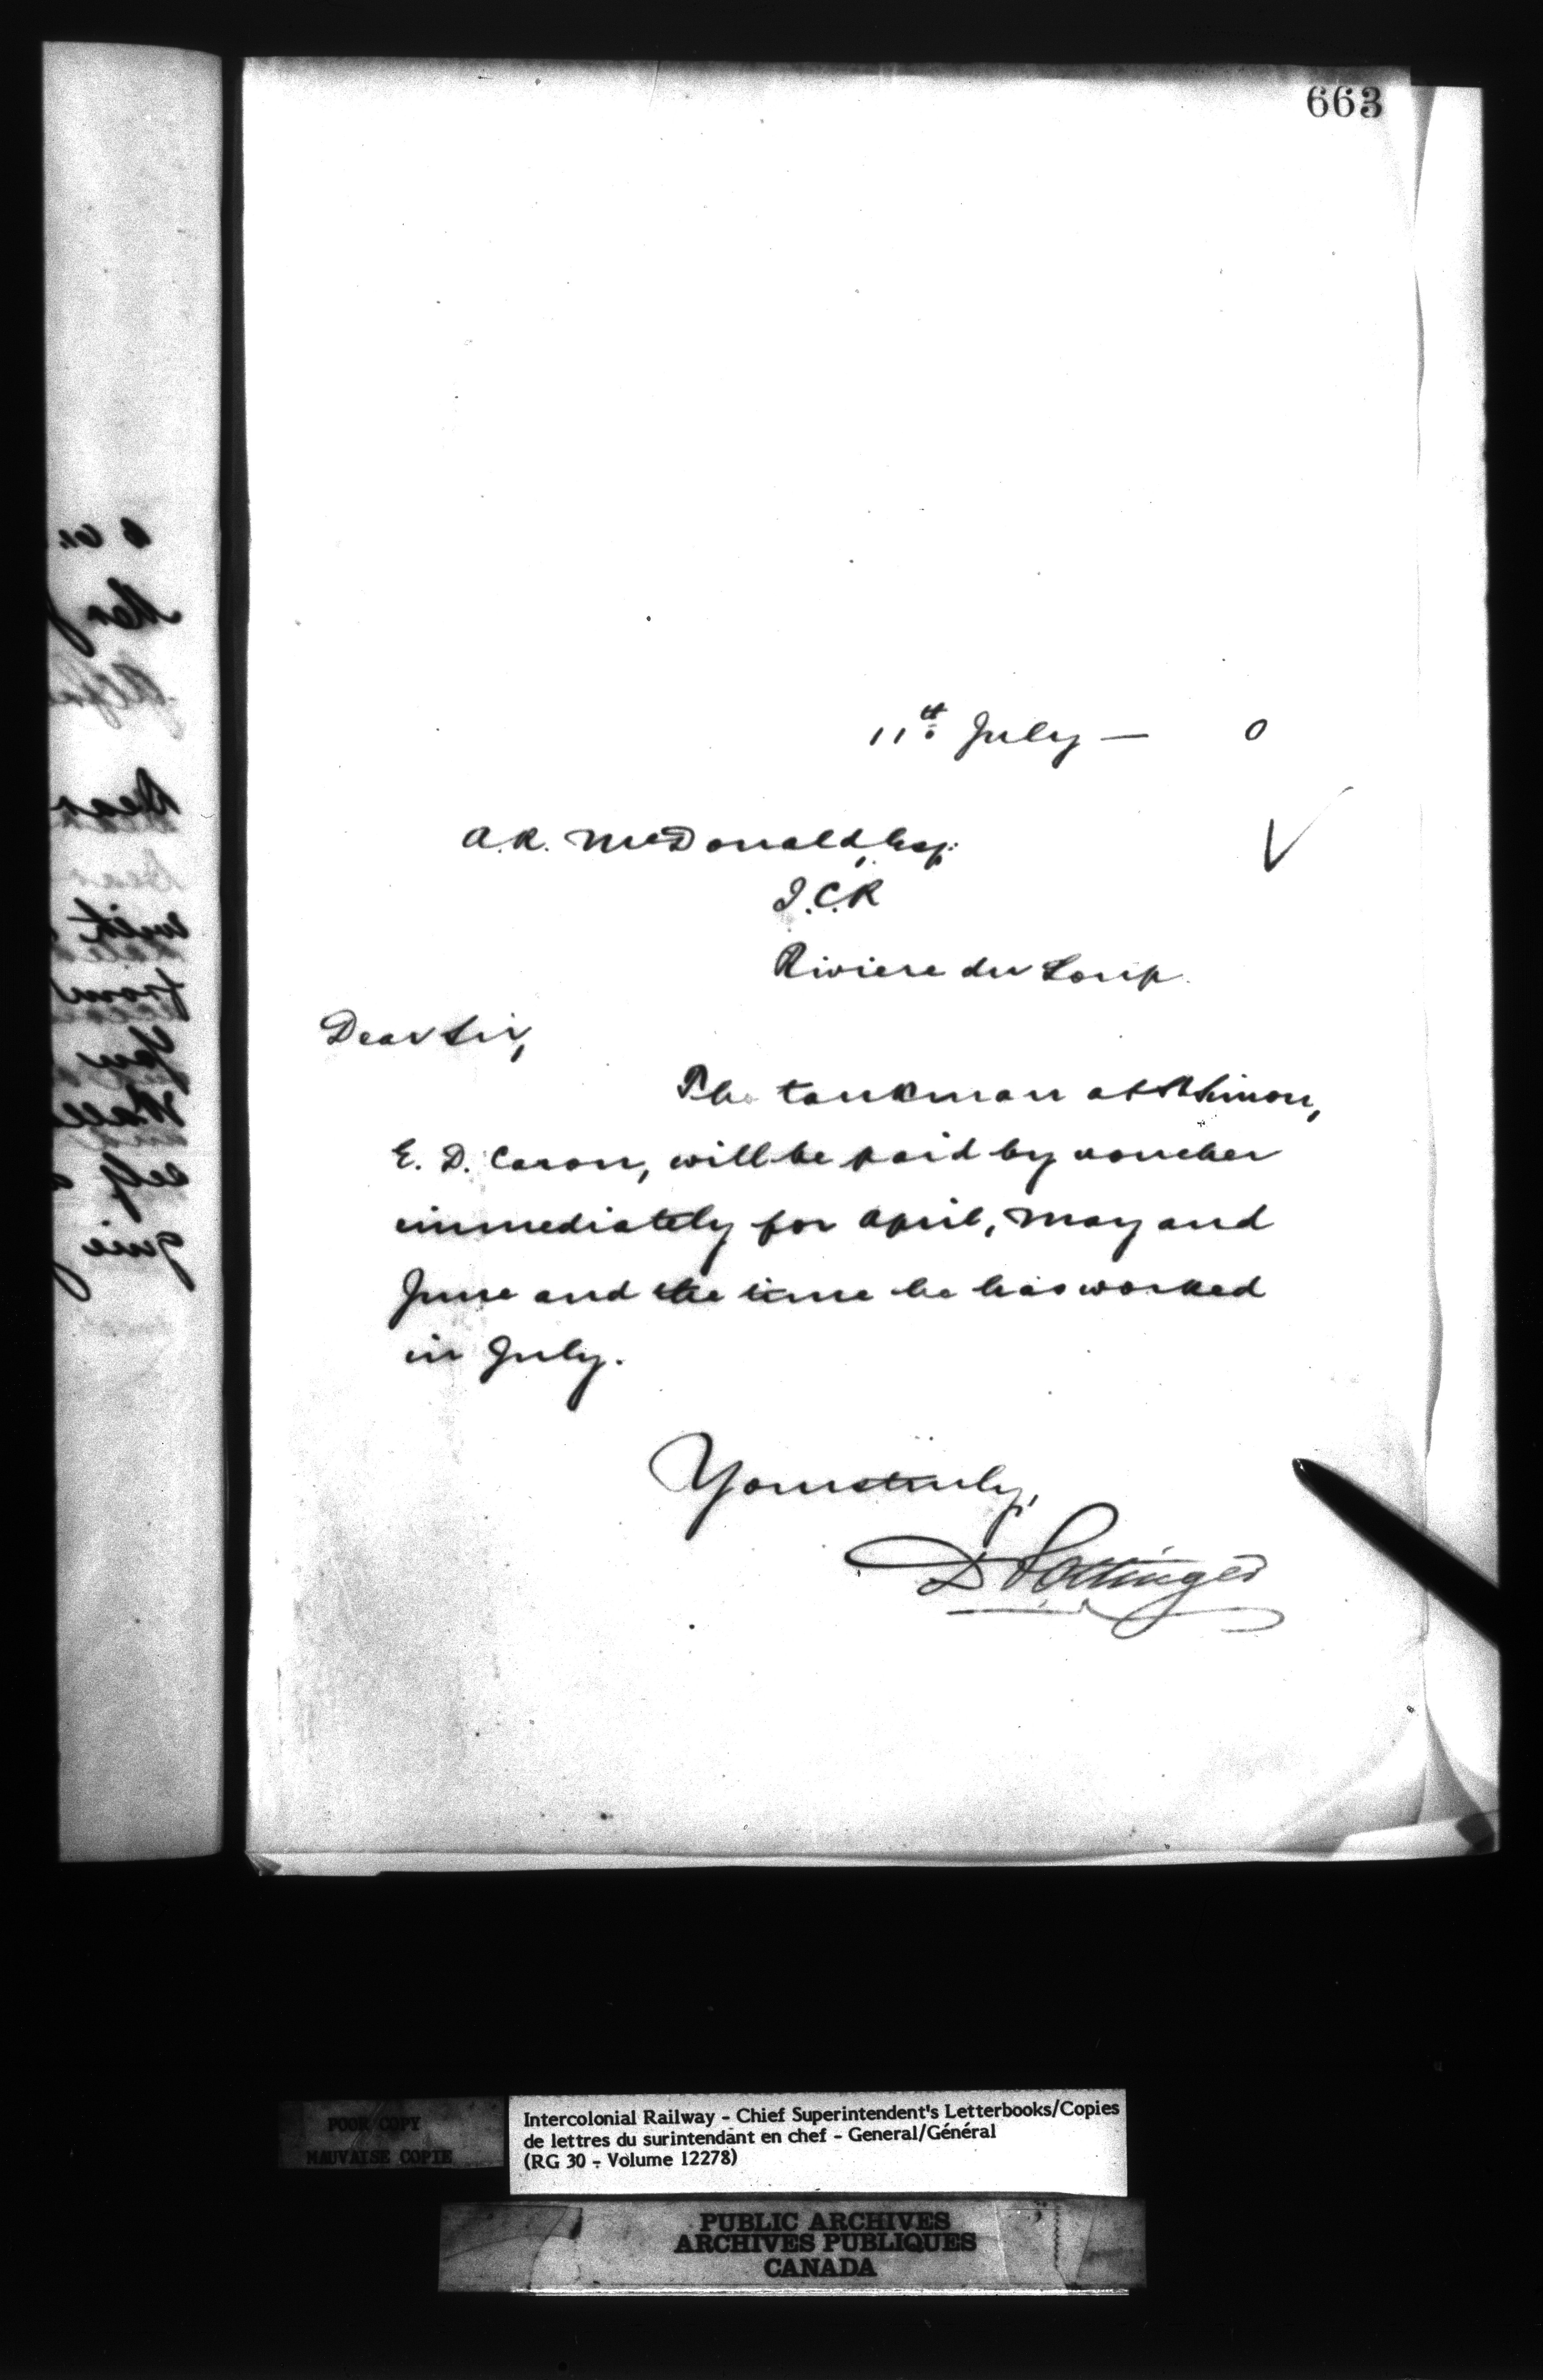 663
11th July — 0
A. R. McDonald, Esq.
I.C.R
Riviere du Loup.
Dear Sir,
The tankman at St Simon,
E. D. Caron, will be paid by voucher
immediately for April, May and
June and the time he has worked
in July.
Yours truly,
D Pottinger
POOR COPY
MAUVAISE COPIE
Intercolonial Railway - Chief Superintendent's Letterbooks/Copies
de lettres du surintendant en chef - General/Général
(RG 30 - Volume 12278)
PUBLIC ARCHIVES
ARCHIVES PUBLIQUES
CANADA